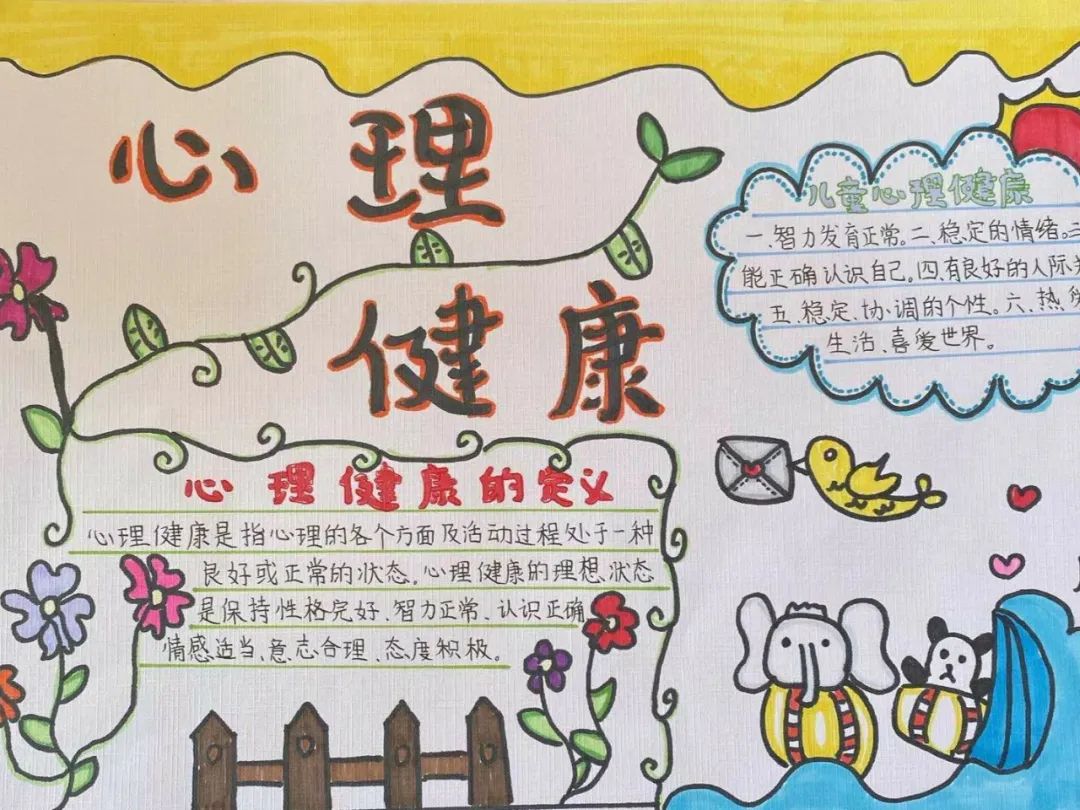 心理
健康
儿童心理健康
一、智力发育正常。二、稳定的情绪。三
能正确认识自己。四、有良好的人际
五、稳定、协调的个性。六、热
生活、喜爱世界。
心理健康的定义
心理健康是指心理的各个方面及活动过程处于一种
良好或正常的状态。心理健康的理想状态
是保持性格完好、智力正常、认识正确
情感适当、意志合理、态度积极。